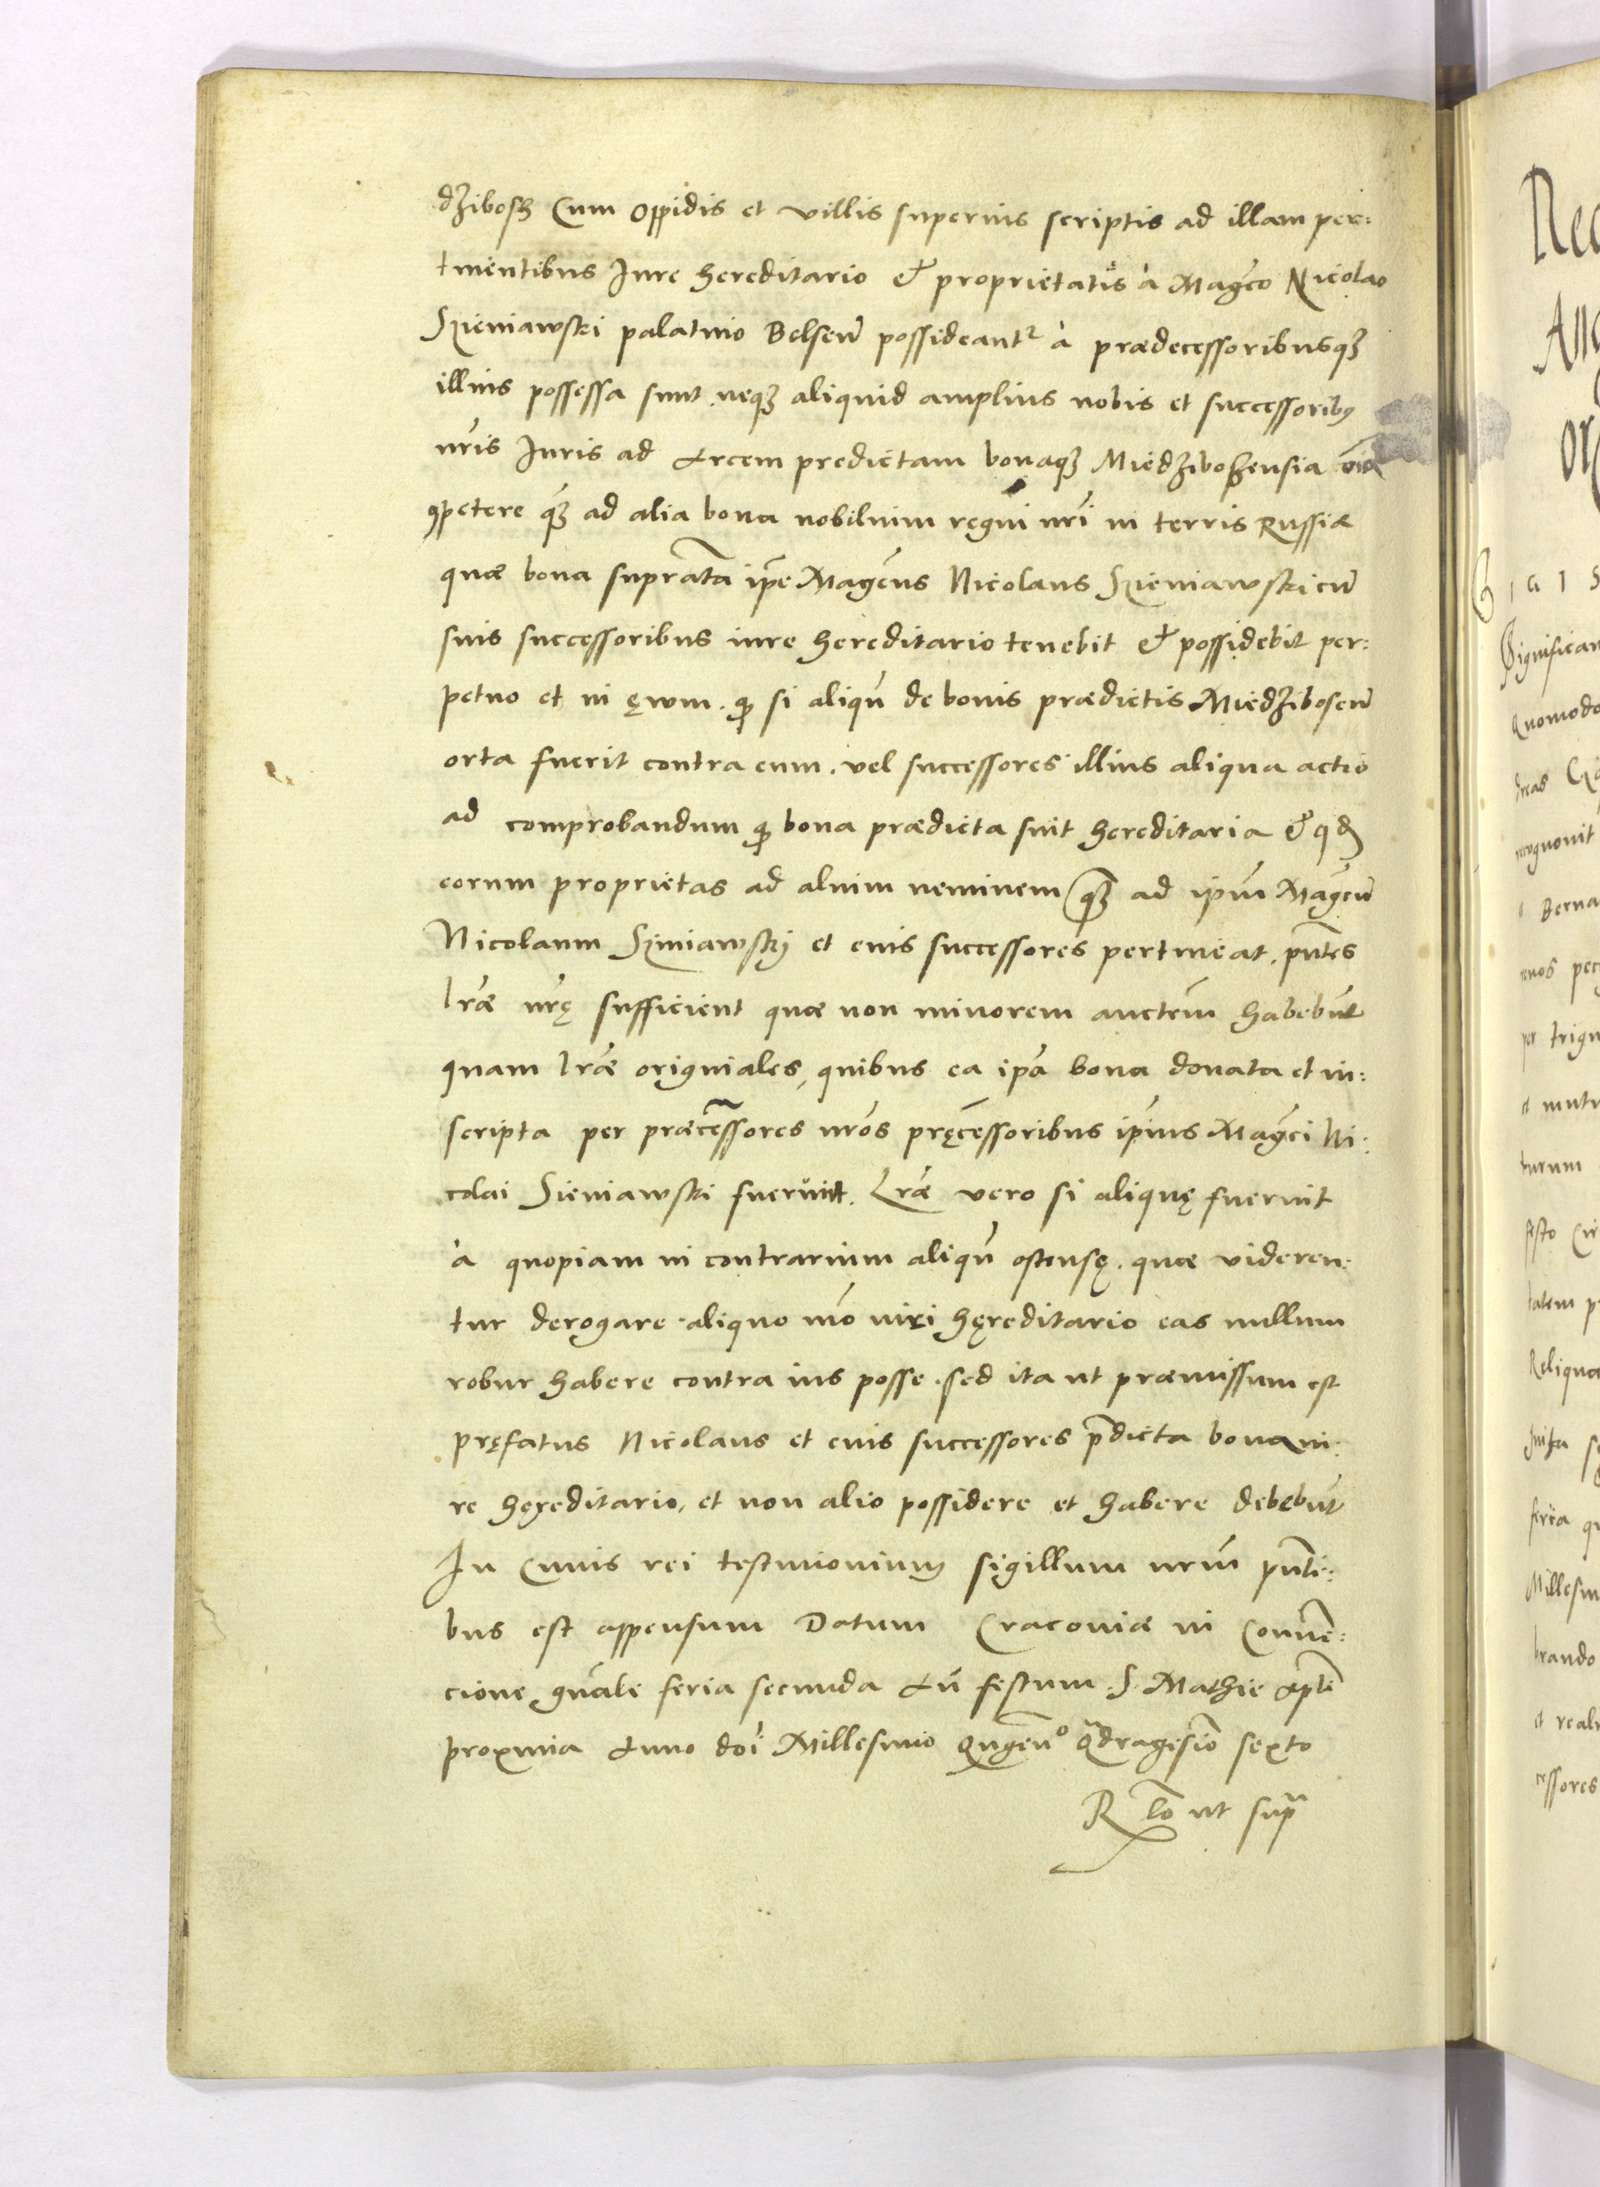 dzibosz Cum oppidis et villis superius scriptis ad illam per:
tinentibus Iure hereditario & proprietatis à Magco Nicolao
Szieniawski palatino Belseñ possideantr à prædecessoribusqʒ
illius possessa sunt neqʒ aliquid amplius nobis et successoribꝰ
nr̃is Iuris ad Arcem predictam bonaqʒ Miedziboszensia
ꝯpetere qʒ̃ ad alia bona nobilium regni nr̃i in terris Russiæ
quæ bona suprata ip̃e Magcus Nicolaus Szieniawski cũ
suis successoribus iure hereditario tenebit & possidebit per:
petuo et in ęwm. ꝙ si aliqñ de bonis prædictis Miedziboseñ
orta fuerit contra eum. vel successores illius aliqua actio
ad comprobandum ꝙ bona prædicta sint hereditaria & qd
eorum proprietas ad alium neminem qʒ̃ ad ipũm Magcũ
Nicolaum Siniawskj et eius successores pertineat. pñtes
lr̃æ nr̃ę sufficient quæ non minorem auctẽm habebũt
quam lr̃æ originales, quibus ea ip̃a bona donata et in:
scripta per præcessores nr̃os pręcessoribus ip̃ius Magci Ni:
colai Sieniawski fuerunt. Lr̃æ vero si aliquę fuerint
à quopiam in contrarium aliqñ ostensę. quæ videren:
tur derogare aliquo mõ iuri hęreditario eas nullum
robur habere contra ius posse. sed ita ut præmissum est
pręfatus Nicolaus et eius successores p̃dicta bona iu:
re hęreditario, et non alio possidere et habere debebũt
In Cuius rei testimonium sigillum nr̃m pñti:
bus est appensum Datum Cracoviæ in Conuẽ:
cione gñali feria secunda An̄ festum S. Mathie Apl̃i
proxima Anno dñi Millesimo Qngeño Qdragesiõ sexto
R lõ ut supra